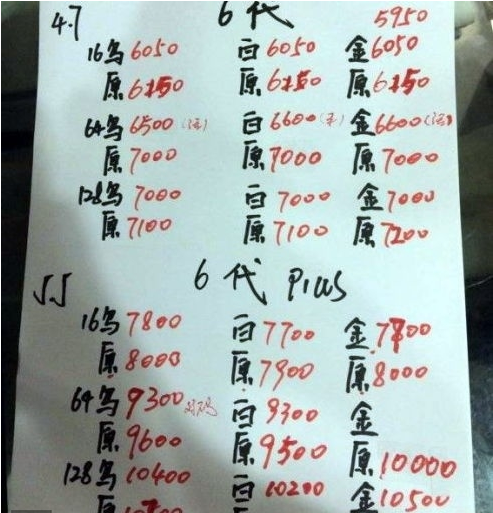 4.7 6代 5950
16鸟6050 白6050 金6050
原6150 原6150 原6150
64鸟6500 白6600 金6600
原7000 原7000 原7000
128鸟7000 白7000 金7000
原7100 原7100 原7200
5.5 6代 Plus
16鸟7800 白7700 金7700
原8000 原7900 原8000
64鸟9300 白9300 金
原9600 原9500 原10000
128鸟10400 白10200 金10500